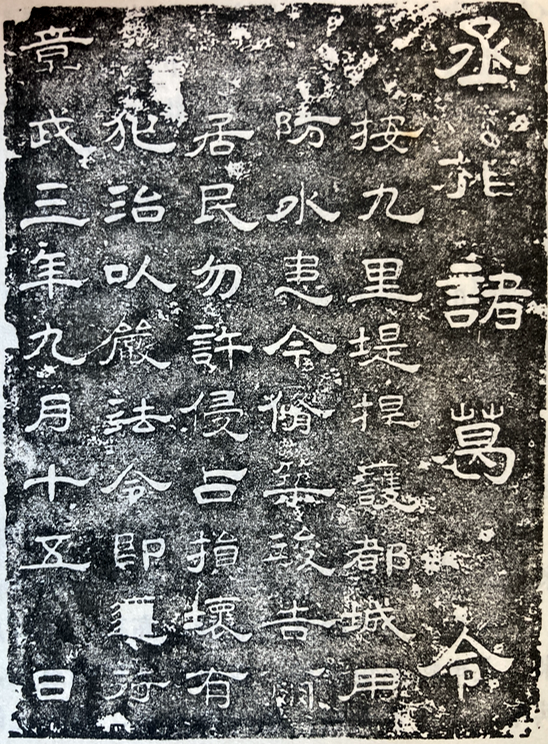 丞相諸葛令
按九里堤捍護都城用
防水患今脩築竣告爾
居民勿許侵占損壞有
犯治以嚴法令即遵行
章武三年九月十五日